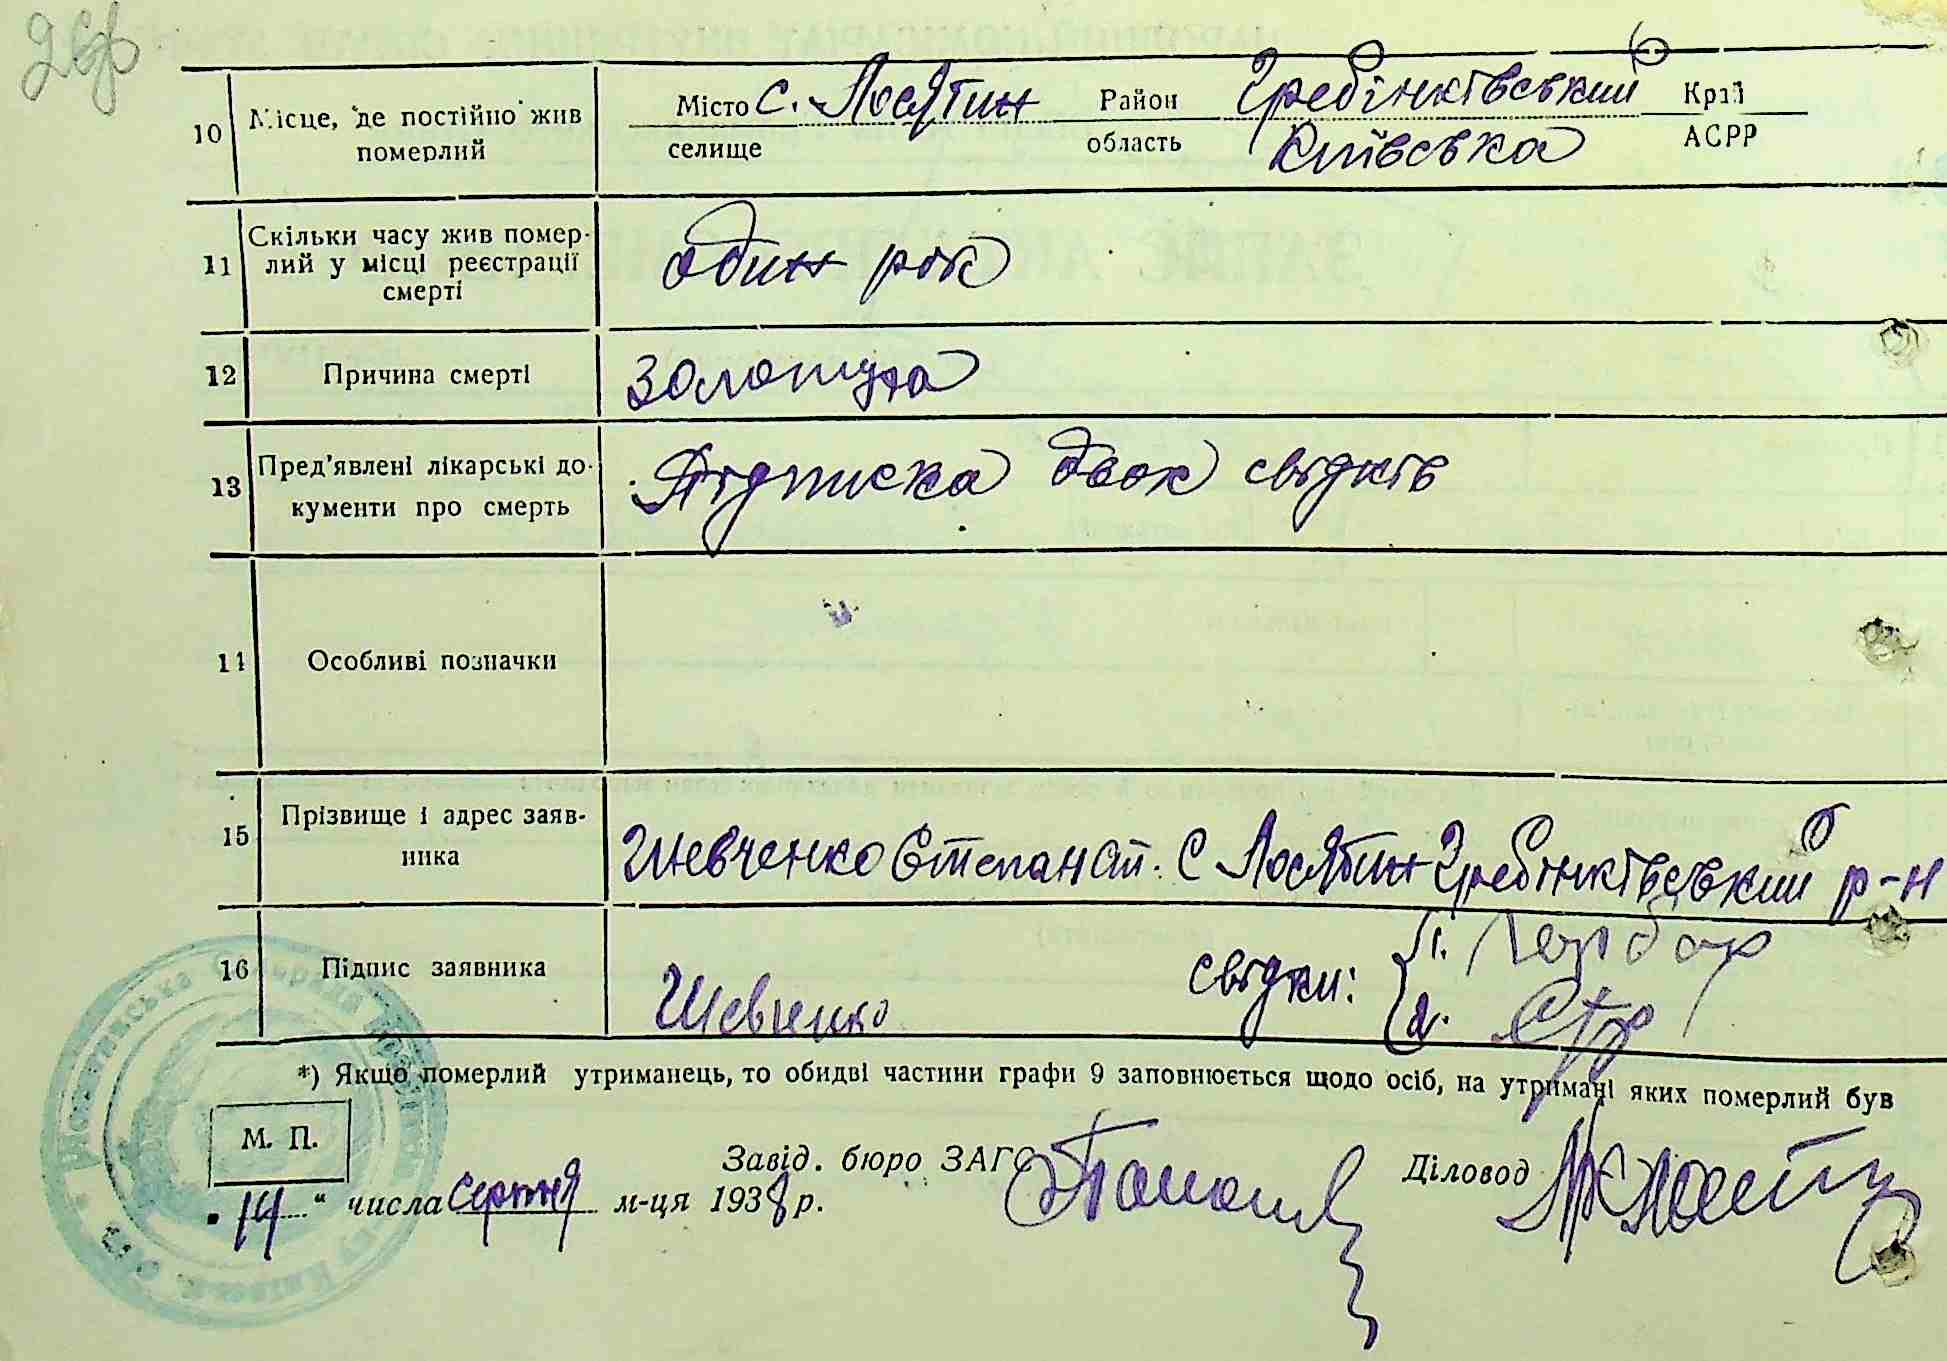 10 Місце, де постійно жив померлий
Місто с. Лосятин Район Гребінківський Край
селище область Київська АСРР
11 Скільки часу жив помер-
лий у місці реєстрації
смерті
один рік
12 Причина смерті золотуха
13 Пред'явлені лікарські до-
кументи про смерть
Підписка двох свідків
14 Особливі позначки
15 Прізвище і адрес заяв-
ника
Шевченко Степан с Лосятин Гребінківський р-н
16 Підпис заявника Шевченко свідки: 1.
2.
*) Якщо померлий утриманець, то обидві частини графи 9 заповнюється щодо осіб, на утримані яких померлий був
М. П.
Завід. бюро ЗАГС Діловод
"14" числа серпня м-ця 1938 р.